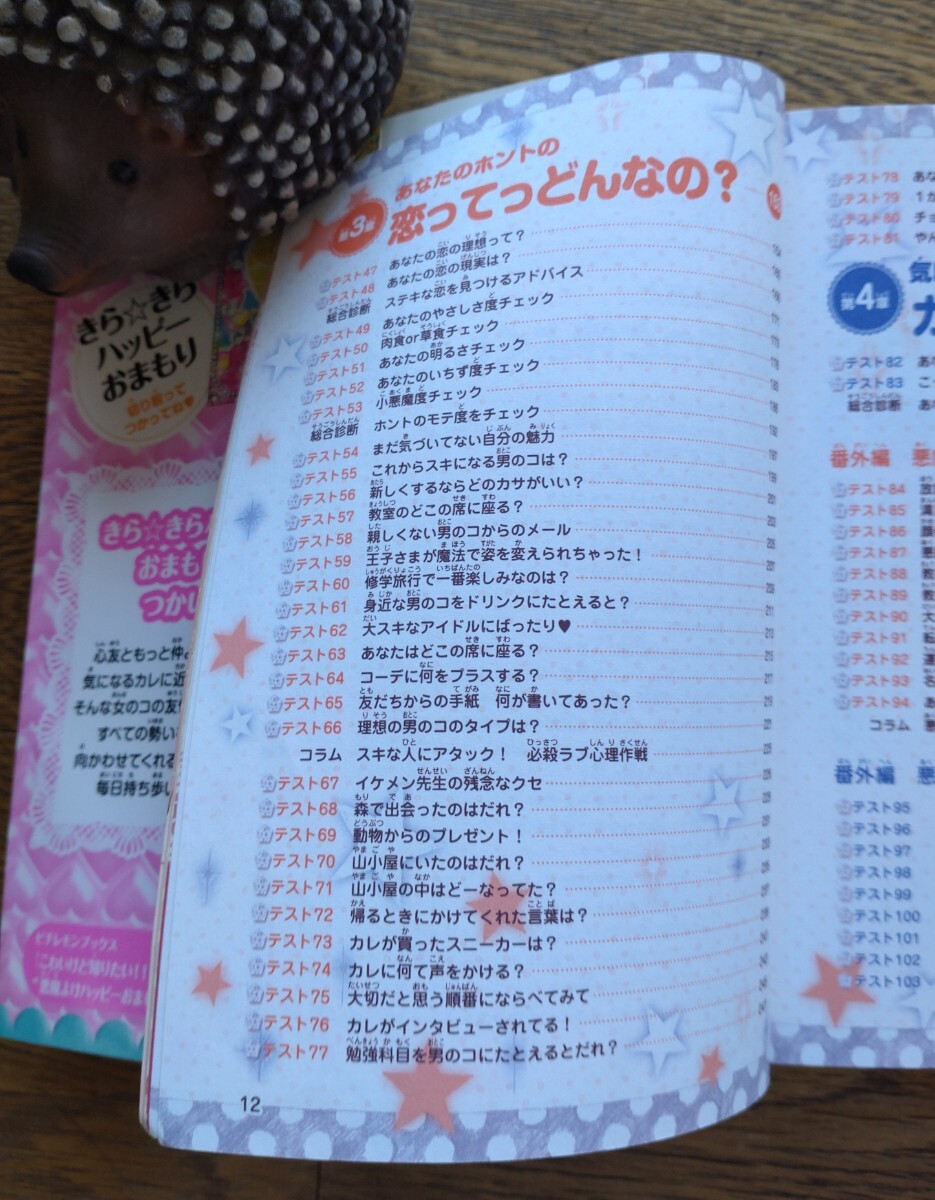 きら☆きら
ハッピー
おまもり
切り取って
つかってね♥
きら☆きら
おまも
つか
心友ともっと仲
気になるカレに近
そんな女のコの友
すべての勢い
向かわせてくれる
毎日持ち歩い
ピチレモンブックス
第3章
あなたのホントの
恋ってっどんなの?
テスト47 あなたの恋の理想って?
テスト48 あなたの恋の現実は?
総合診断 ステキな恋を見つけるアドバイス
テスト49 あなたのやさしさ度チェック
テスト50 肉食or草食チェック
テスト51 あなたの明るさチェック
テスト52 あなたのいちず度チェック
テスト53 小悪魔度チェック
総合診断 ホントのモテ度をチェック
テスト54 まだ気づいてない自分の魅力
テスト55 これからスキになる男のコは?
テスト56 新しくするならどのカサがいい?
テスト57 教室のどこの席に座る?
テスト58 親しくない男のコからのメール
テスト59 王子さまが魔法で姿を変えられちゃった!
テスト60 修学旅行で一番楽しみなのは?
テスト61 身近な男のコをドリンクにたとえると?
テスト62 大スキなアイドルにばったり♥
テスト63 あなたはどこの席に座る?
テスト64 コーデに何をプラスする?
テスト65 友だちからの手紙 何が書いてあった?
テスト66 理想の男のコのタイプは?
コラム スキな人にアタック! 必殺ラブ心理作戦
テスト67 イケメン先生の残念なクセ
テスト68 森で出会ったのはだれ?
テスト69 動物からのプレゼント!
テスト70 山小屋にいたのはだれ?
テスト71 山小屋の中はどーなってた?
テスト72 帰るときにかけてくれた言葉は?
テスト73 カレが買ったスニーカーは?
テスト74 カレに何て声をかける?
テスト75 大切だと思う順番にならべてみて
テスト76 カレがインタビューされてる!
テスト77 勉強科目を男のコにたとえるとだれ?
12
テスト78 あな
テスト79 1か
テスト80 チョ
テスト81 やん
第4章
テスト82 あ
テスト83 こ
総合診断 あ
番外編 悪
テスト84
テスト85
テスト86
テスト87
テスト88
テスト89
テスト90
テスト91
テスト92
テスト93
テスト94
コラム
番外編
テスト95
テスト96
テスト97
テスト98
テスト99
テスト100
テスト101
テスト102
テスト103